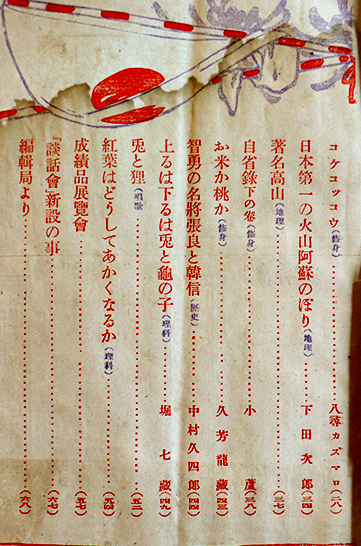 コケコッコウ(修身)…………八尋カズマロ(二八)
日本第一の火山阿蘇のぼり(地理)……下田次郎(三四)
著名高山(地理)…………(三七)
自省錄下の卷(修身)…………小蘆(三八)
お米か桃か(修身)…………久芳龍藏(四三)
智勇の名將張良と韓信(歷史)……中村久四郎(四四)
上るは下るは兎と龜の子(理科)……堀七藏(四九)
兎と狸(唱歌)…………(五二)
紅葉はどうしてあかくなるか(理科)……(五四)
成績品展覽會…………(五七)
「談話會」新設の事…………(六七)
編輯局より…………(六八)